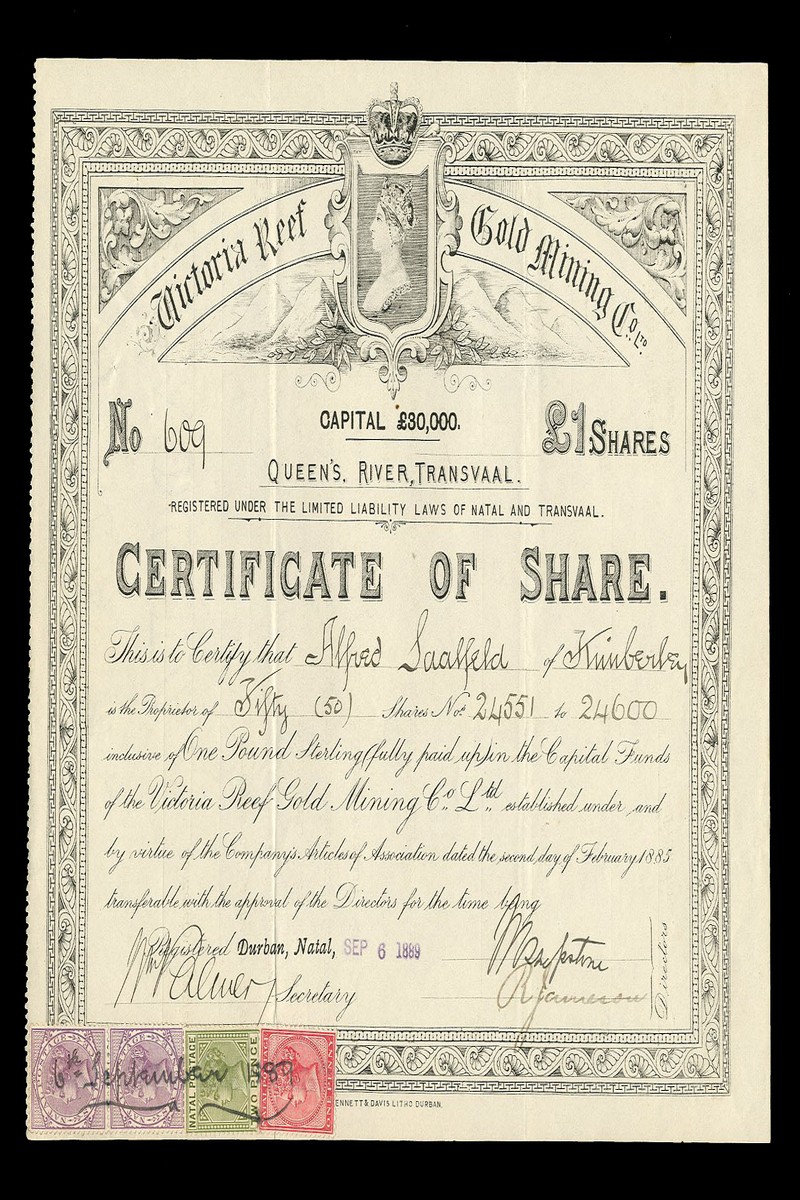 Victoria Reef Gold Mining Co. Ltd.
No 609
CAPITAL £30,000.
£1 SHARES
QUEEN'S, RIVER, TRANSVAAL.
REGISTERED UNDER THE LIMITED LIABILITY LAWS OF NATAL AND TRANSVAAL.
CERTIFICATE OF SHARE.
This is to Certify that Alfred Saalfeld of Kimberley
is the Proprietor of Fifty (50) Shares Nos. 24551 to 24600
inclusive of One Pound Sterling (fully paid up) in the Capital Funds
of the Victoria Reef Gold Mining Co. Ltd established under and
by virtue of the Company's Articles of Association dated the second day of February 1885
transferable with the approval of the Directors for the time being
Registered Durban, Natal, SEP 6 1889
Wm Palmer Secretary
R Jameson
Directors
6th September 1889
POSTAGE
NATAL POSTAGE
TWO PENCE
ONE PENNY
BENNETT & DAVIS LITHO DURBAN.